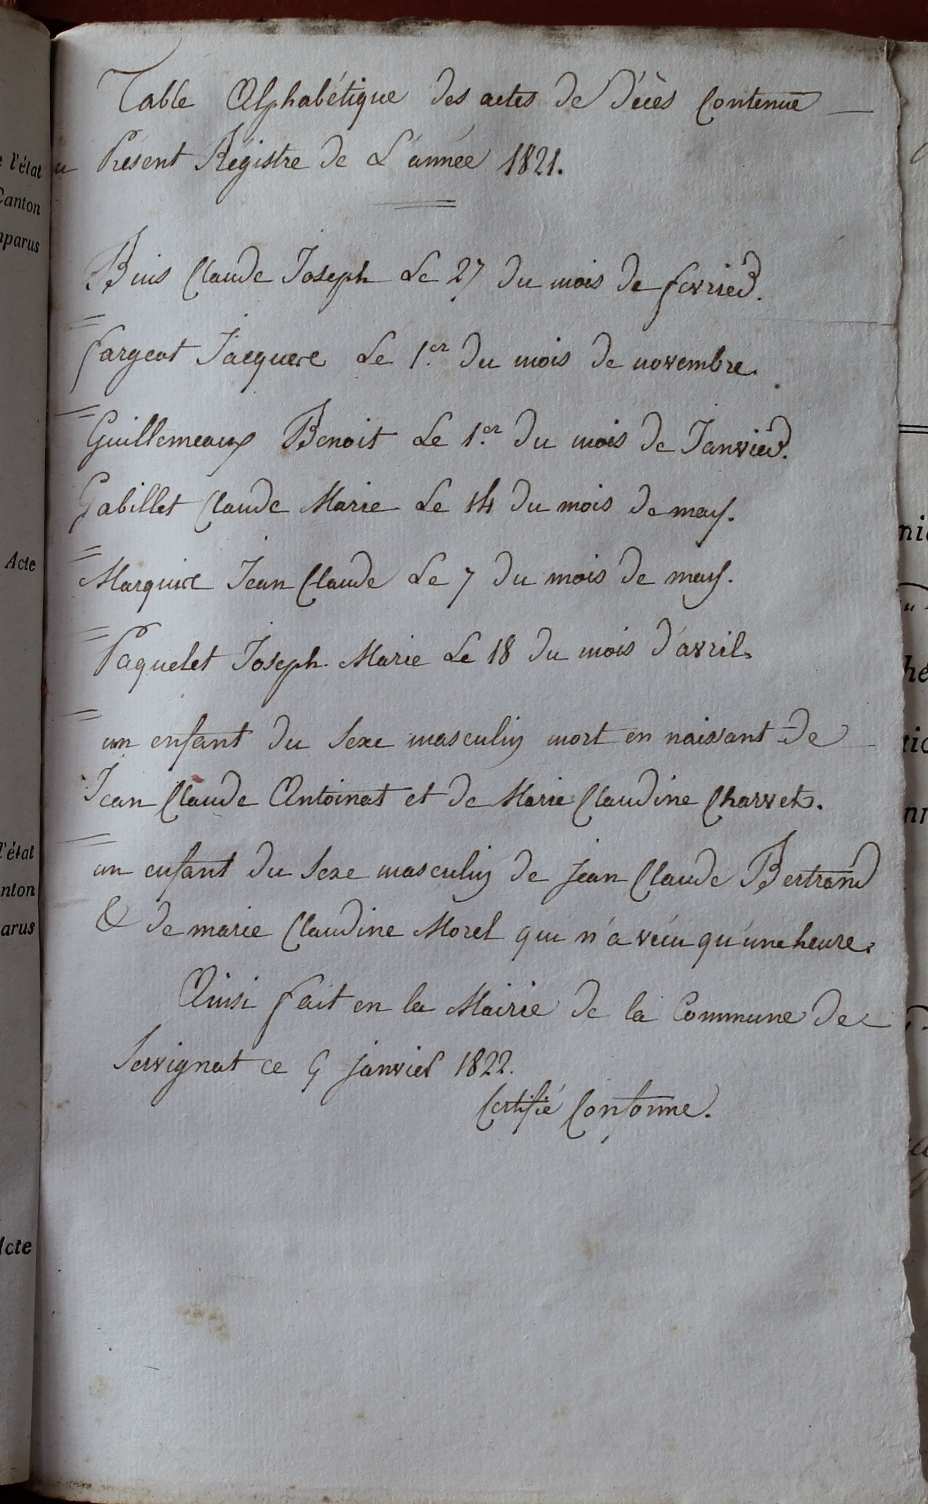 Table Alphabétique des actes de Décès Contenue
u Présent Régistre de L'année 1821.
Buis Claude Joseph Le 27 du mois de fevrier.
fargeot Le 1er du mois de novembre.
Guillemeaux Benoit Le 1er du mois de Janvier.
Gabillet Claude Marie Le 14 du mois de may.
Jean Claude Le 7 du mois de may.
Paquelet Joseph Marie Le 18 du mois d'avril.
un enfant du Sexe masculin mort en naissant de
Jean Claude Antoinat et de Marie Claudine Charvet.
un enfant du Sexe masculin de jean Claude Bertrand
& de marie Claudine Morel qui n'a vécu qu'une heure.
Ainsi fait en la Mairie de la Commune de
Servignat ce janvier 1822.
Certifié Conforme.
e l'état
Canton
mparus
Acte
l'état
anton
arus
Acte